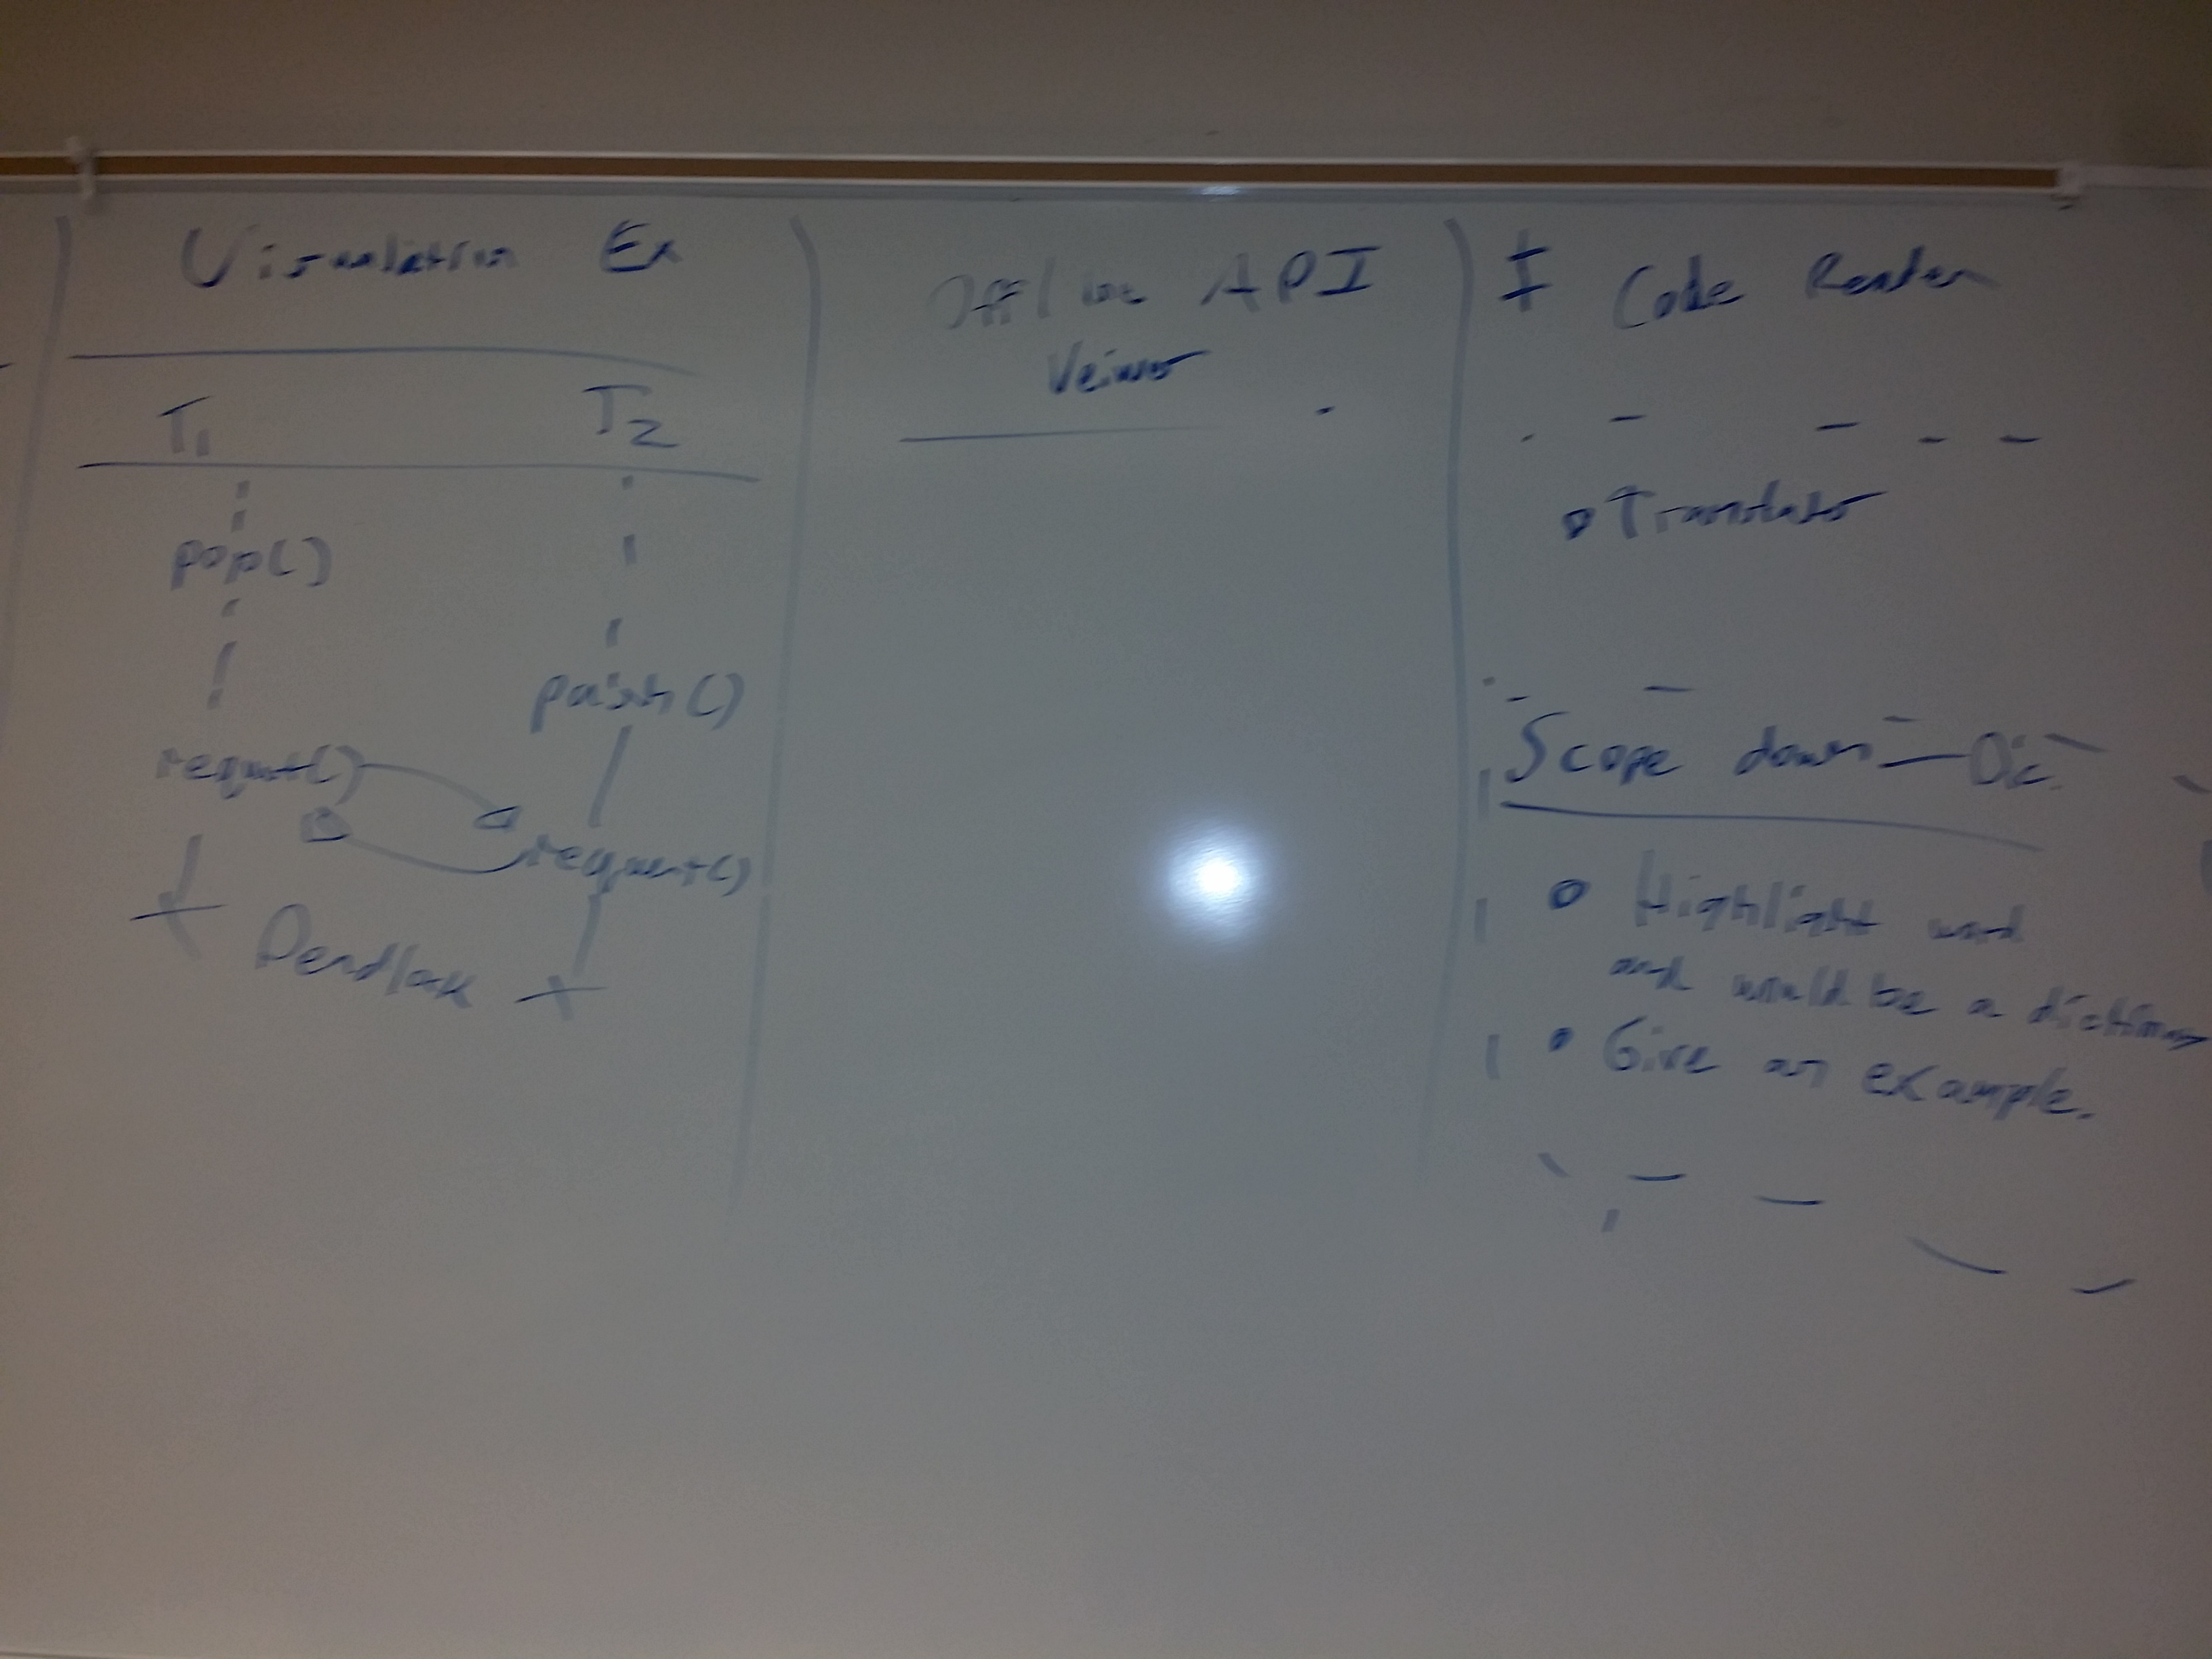 Visualation Ex
T1 T2
pop()
push()
request()
request()
Deadlock
Offline API
Veiwer
Code Reader
Translator
Scope down — Dic.
Highlight word
and would be a dictionary
Give an example.